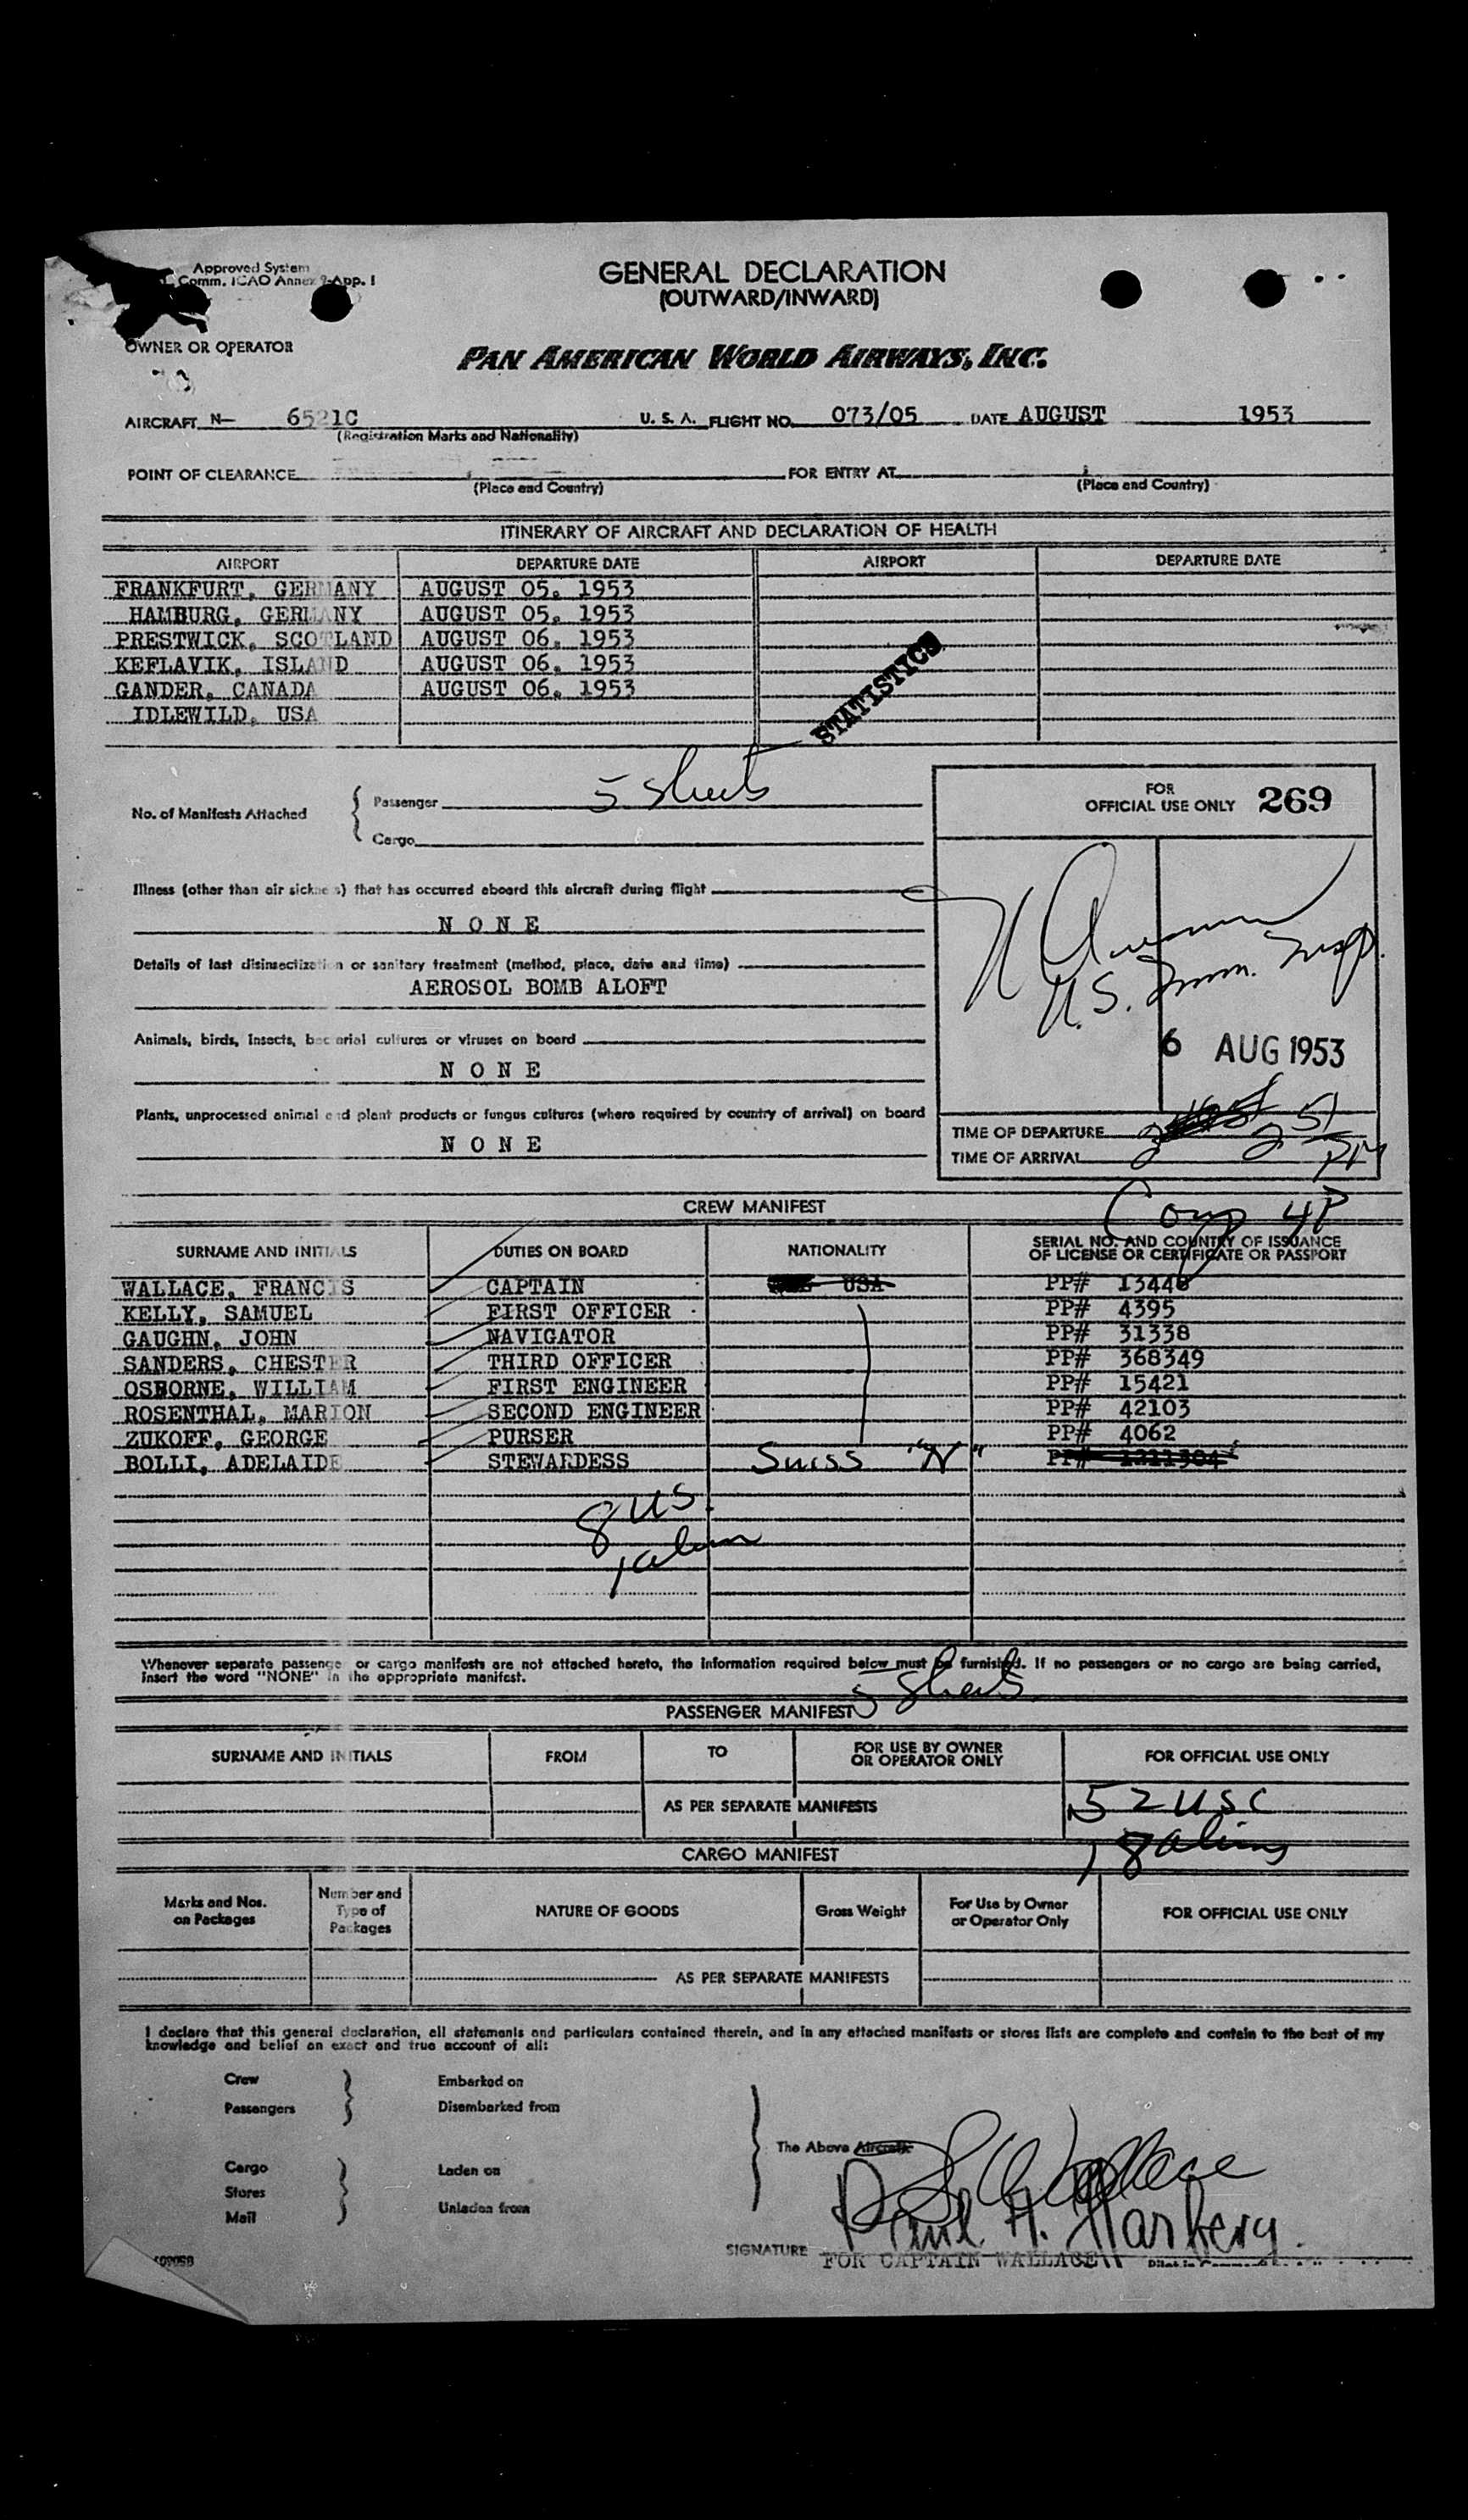 Approved System
Comm. ICAO Annex 9-App. 1
GENERAL DECLARATION
(OUTWARD/INWARD)
OWNER OR OPERATOR
PAN AMERICAN WORLD AIRWAYS, INC.
AIRCRAFT N- 6521C U. S. A. FLIGHT NO. 073/05 DATE AUGUST 1953
(Registration Marks and Nationality)
POINT OF CLEARANCE FOR ENTRY AT
(Place and Country) (Place and Country)
ITINERARY OF AIRCRAFT AND DECLARATION OF HEALTH
AIRPORT DEPARTURE DATE AIRPORT DEPARTURE DATE
FRANKFURT, GERMANY AUGUST 05, 1953
HAMBURG, GERMANY AUGUST 05, 1953
PRESTWICK, SCOTLAND AUGUST 06, 1953
KEFLAVIK, ISLAND AUGUST 06, 1953
GANDER, CANADA AUGUST 06, 1953
IDLEWILD, USA
STATISTICS
No. of Manifests Attached
Passenger 5 sheets
Cargo
FOR
OFFICIAL USE ONLY 269
Illness (other than air sickness) that has occurred aboard this aircraft during flight
NONE
Details of last disinsectization or sanitary treatment (method, place, date and time)
AEROSOL BOMB ALOFT
U.S. Imm. Insp.
Animals, birds, insects, bacterial cultures or viruses on board
NONE
6 AUG 1953
Plants, unprocessed animal and plant products or fungus cultures (where required by country of arrival) on board
NONE
TIME OF DEPARTURE
TIME OF ARRIVAL 2 51 PM
CREW MANIFEST
Comp 4P
SURNAME AND INITIALS DUTIES ON BOARD NATIONALITY SERIAL NO. AND COUNTRY OF ISSUANCE
OF LICENSE OR CERTIFICATE OR PASSPORT
WALLACE, FRANCIS CAPTAIN USA PP# 13446
KELLY, SAMUEL FIRST OFFICER PP# 4395
GAUGHN, JOHN NAVIGATOR PP# 31338
SANDERS, CHESTER THIRD OFFICER PP# 368349
OSBORNE, WILLIAM FIRST ENGINEER PP# 15421
ROSENTHAL, MARION SECOND ENGINEER PP# 42103
ZUKOFF, GEORGE PURSER PP# 4062
BOLLI, ADELAIDE STEWARDESS Swiss "N" PP# 1211304
8 US
1 alien
Whenever separate passenger or cargo manifests are not attached hereto, the information required below must be furnished. If no passengers or no cargo are being carried,
insert the word "NONE" in the appropriate manifest.
PASSENGER MANIFEST 5 Sheets
SURNAME AND INITIALS FROM TO FOR USE BY OWNER
OR OPERATOR ONLY FOR OFFICIAL USE ONLY
AS PER SEPARATE MANIFESTS 52 USC
18 aliens
CARGO MANIFEST
Marks and Nos.
on Packages
Number and
Type of
Packages
NATURE OF GOODS
Gross Weight
For Use by Owner
or Operator Only
FOR OFFICIAL USE ONLY
AS PER SEPARATE MANIFESTS
I declare that this general declaration, all statements and particulars contained therein, and in any attached manifests or stores lists are complete and contain to the best of my
knowledge and belief an exact and true account of all:
Crew Embarked on
Passengers Disembarked from
The Above Aircraft
Cargo Laden on
Stores
Mail Unladen from
Wallace
Paul H.
SIGNATURE
FOR CAPTAIN WALLACE